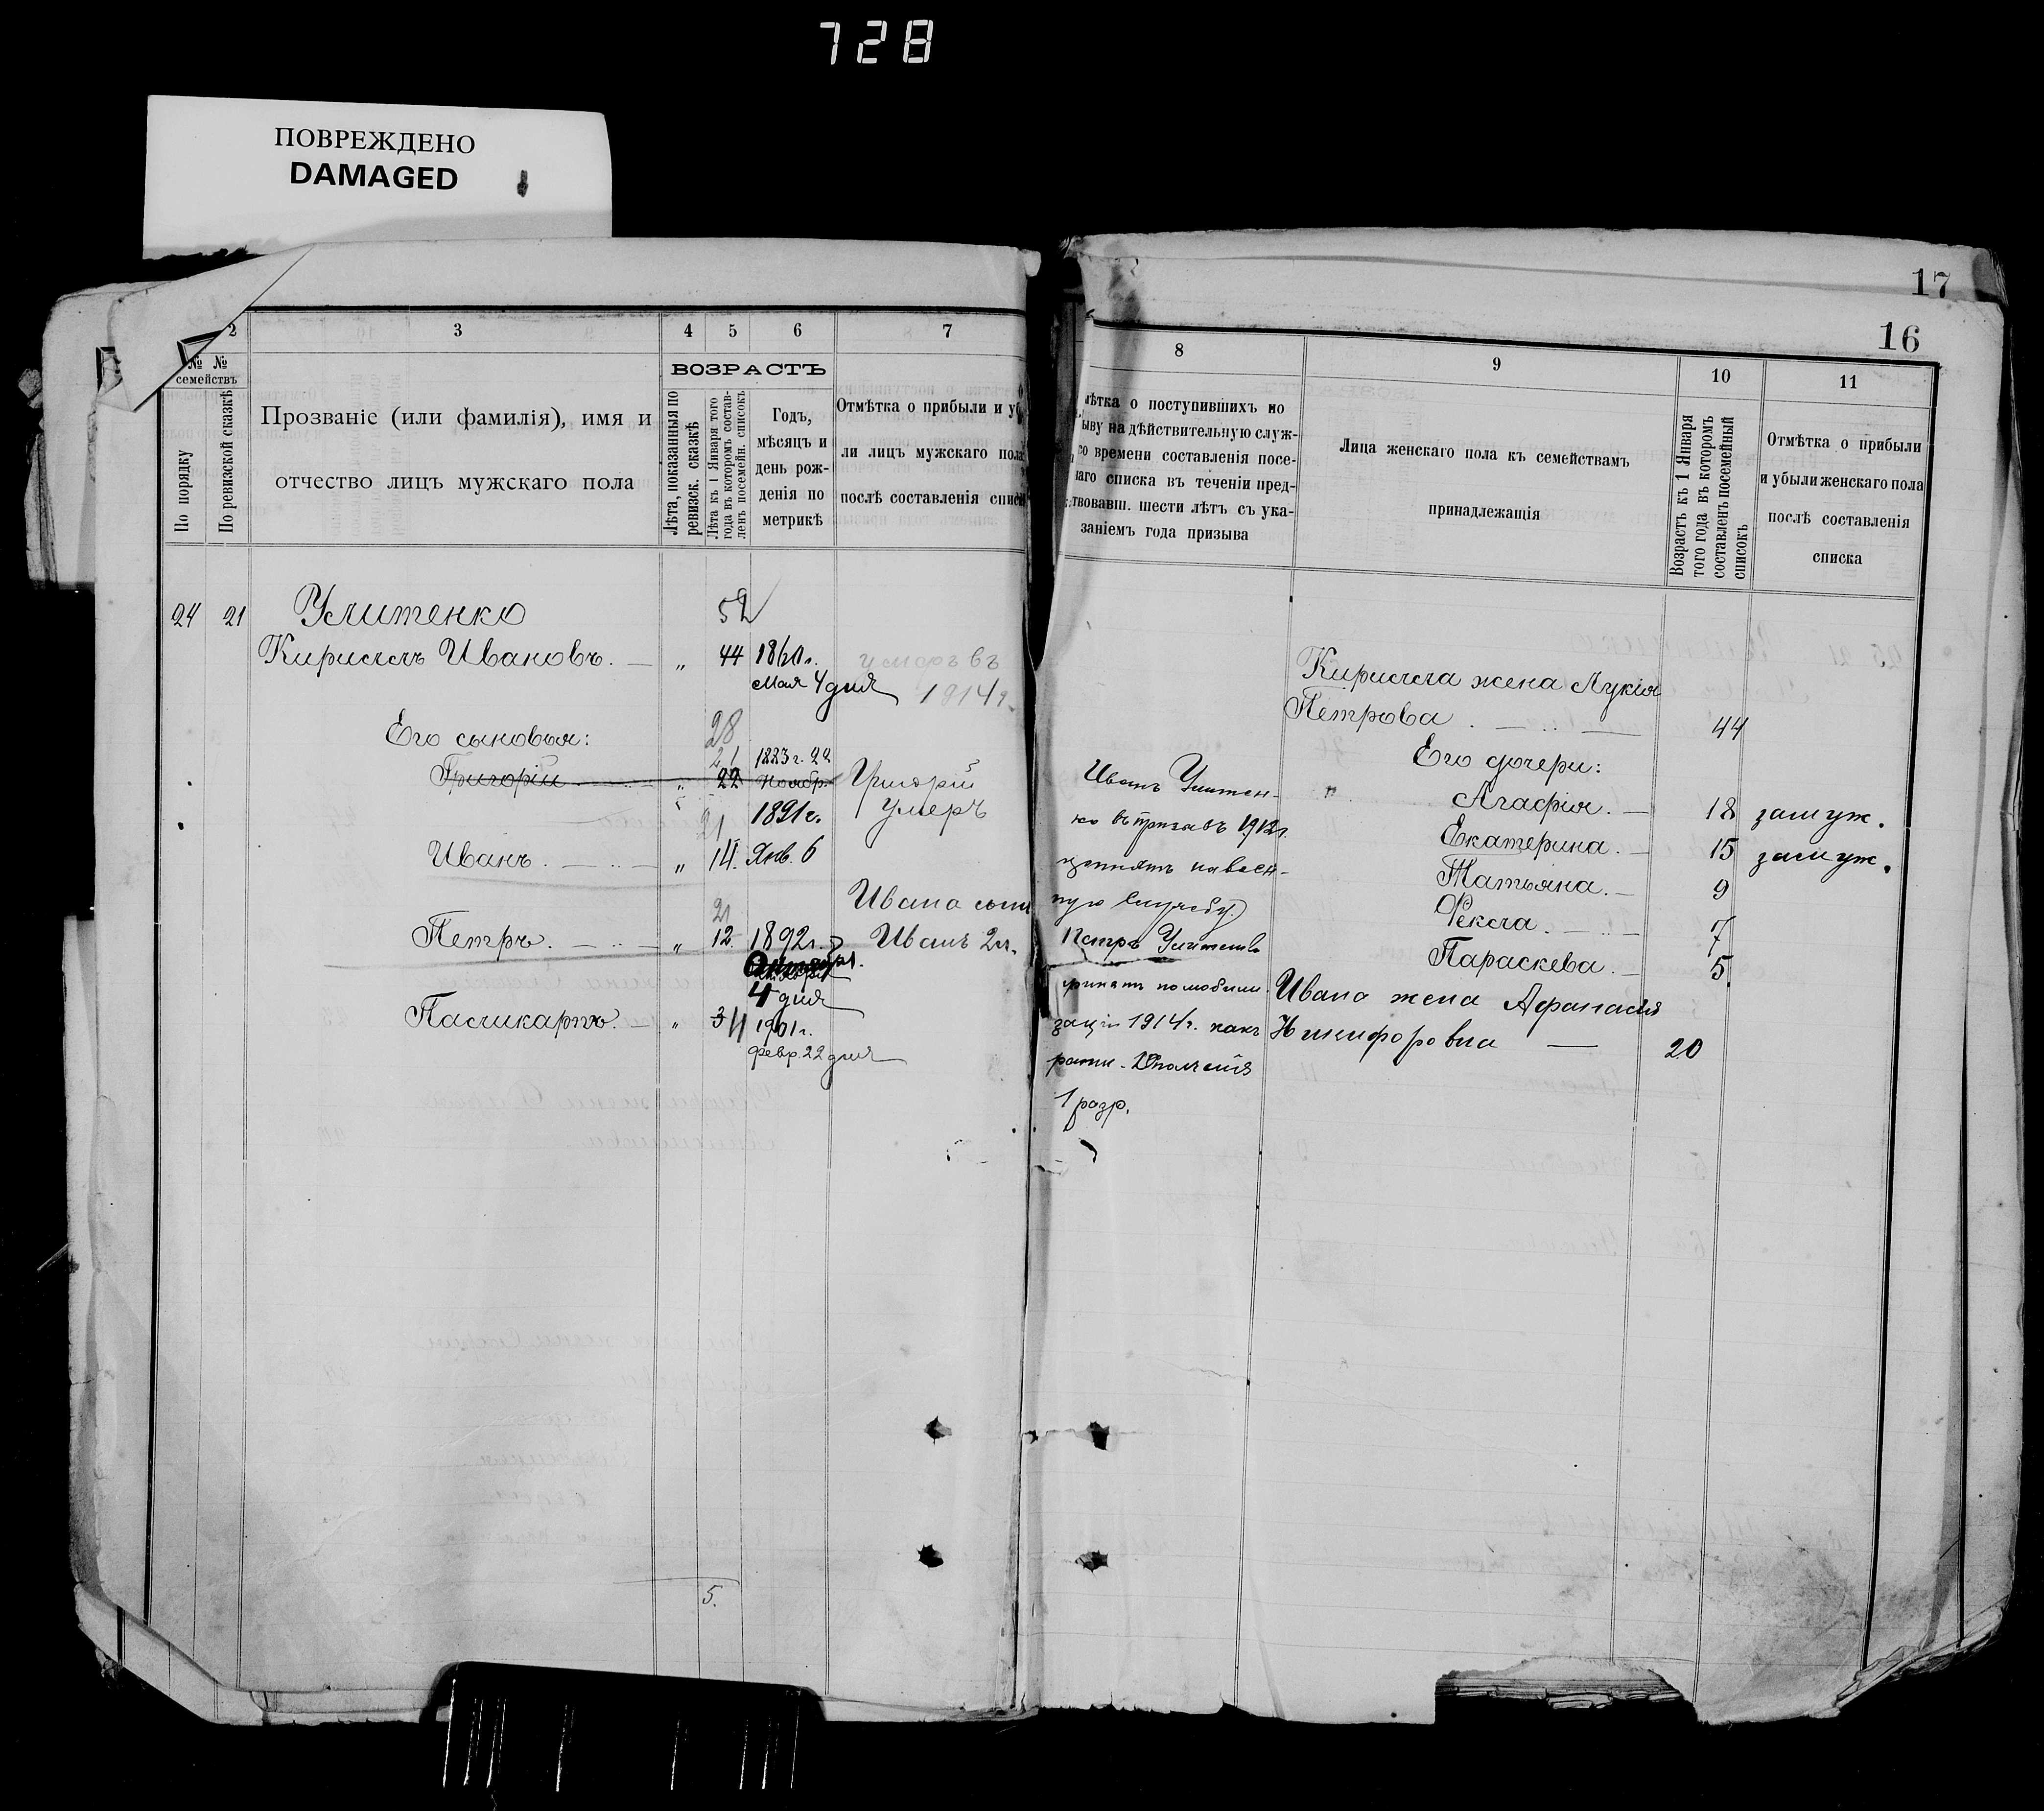 728
ПОВРЕЖДЕНО
DAMAGED
17
16
2
3
4
5
6
7
№ №
семействъ
По порядку
По ревизской сказкѣ
Прозваніе (или фамилія), имя и
отчество лицъ мужскаго пола
ВОЗРАСТЪ
Лѣта, показанныя по
ревизск. сказкѣ
Лѣта къ 1 Января того
года въ которомъ состав-
ленъ посемейн. списокъ
Годъ,
мѣсяцъ и
день рож-
денія по
метрикѣ
Отмѣтка о прибыли и уб
ли лицъ мужскаго пола
послѣ составленія списк
24 21 Улитенко 52
Кириллъ Ивановъ. — „ 44 1860 г. умеръ въ
Мая 4 дня 1914 г.
Его сыновья: 28
21 1883 г. 22
Григорій „ 22 Ноябр. Григорій
21 1891 г. умеръ
Иванъ. — „ 14. Янв. 6
21 Ивана сын
Петръ. — „ 12. 1892 г. Иванъ 2 л.
Октября
4 дня
Паликарпъ. — „ 34 1901 г.
февр. 22 дня
5.
8
9
10
11
мѣтка о поступившихъ по
ыву на дѣйствительную служ-
со времени составленія посе-
наго списка въ теченіи пред-
твовавш. шести лѣтъ съ ука-
заніемъ года призыва
Лица женскаго пола къ семействамъ
принадлежащія
Возрастъ къ 1 Января
того года въ которомъ
составленъ посемейный
списокъ
Отмѣтка о прибыли
и убыли женскаго пола
послѣ составленія
списка
Кирилла жена Лукія
Петрова . — 44
Его дочери:
Иванъ Улитен- „ Агафія. — 18 замуж.
ко въ призывъ 1912 г. Екатерина. — 15 замуж.
принятъ на воен- Татьяна. — 9
ную службу. Фекла. — 7
Петръ Улитенко Параскева. — 5.
принятъ по мобили- Ивана жена Афанасія
заціи 1914 г. какъ Никифоровна — 20
ратн. Ополченія
1 разр.